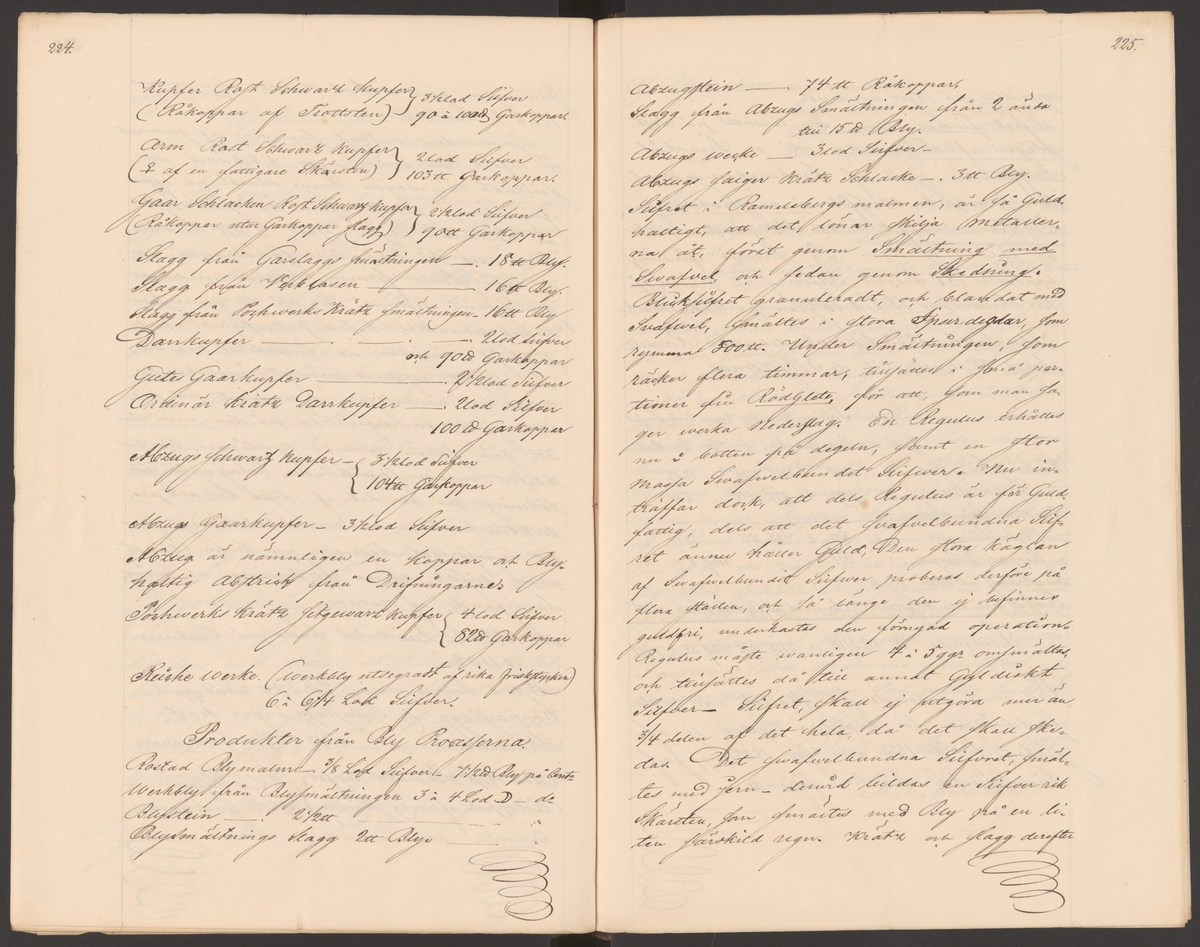 224.
Kupfer Rost Schwarz Kupfer } 3½ lod Silfver
(Råkoppar af Trottsten) } 90 à 100 ℔ Garkoppar.
Arm Rost Schwarz Kupfer } 2 lod Silfver
(♀ af en fattigare Skärsten) } 103 tt Garkoppar.
Gaar Schlacken Rost Schwarz Kupfer } 2½ lod Silfver
(Råkoppar utur Garkoppar slagg) } 90 tt Garkoppar
Slagg från Garslaggs smältningen — . 18 tt Bly.
Slagg från Verblasen — 16 tt Bly.
Slagg från Pochwerks Krätz smältningen - 16 tt Bly
Darrkupfer — . — . — 2 lod Silfver
och 90 ℔ Garkoppar
Gutes Gaarkupfer — 2½ lod Silfver
Ordinär Krätz Darrkupfer — . 2 lod Silfver
100 ℔ Garkoppar
Abzugs schwarz Kupfer — { 3½ lod Silfver
{ 104 tt Garkoppar
Abzugs Gaarkupfer — 3½ lod Silfver
Abzug är nämnligen en Koppar och Bly-
haltig Abstrich från Drifningarne.
Pochwerks Krätz schwarz Kupfer { 4 lod Silfver
{ 82 ℔ Garkoppar
Reiche werke. (Werkbly utsegradt af rike frischstycken)
6 à 6¼ Lod Silfver.
Produkter från Bly Processerna.
Rostad Blymalm — 3/8 Lod Silfver — 7½ ℔ Bly på Centn
Werkbly från Blysmältningen 3 à 4 Lod D — do
Blystein — . 2½ tt — "
Blysmältnings Slagg 2 tt Bly. — "
225.
Abzugstein — . 74 tt Råkoppar.
Slagg från Abzugs Smältningen från 2 ända
till 15 ℔ Bly.
Abzugs wercke — 3 lod Silfver —
Abzugs saiger Krätz Schlacke — . 3 tt Bly.
Silfret i Ramelsbergs malmen, är så Guld
haltigt, att det lönar skilja metaller-
na åt, först genom Smältning med
Swafvel, och sedan genom Skedning.
Blicksilfret granuleradt, och blandat med
Svafwel, smältes i stora Ipserdeglar, som
rymma 500 tt. Under Smältningen, som
räcker flera timmar, tillsättes i små par-
tioner fin Rödglete, för att, som man sä-
ger werka Nederslag. En Regulus erhålles
nu i botten på degeln, samt en stor
massa Swafvelbundet Silfwer. Nu in-
träffar dock, att dels Regulus är för Guld
fattig, dels att det svafvelbundna Silf-
ret ännu håller Guld, Den stora käglan
af Swafvelbundit Silfwer proberas derföre på
flera ställen, och så länge den ej befinnes
guldfri, underkastas den förnyad operation.
Regulus måste wanligen 4 à 5 ggr omsmältas,
och tillsättes då till annat Gyldiskt
Silfver — Silfret, skall ej utgöra mer än
3/4 delen af det hela, då det skall ske-
das. Det swafwelbundna Silfvret, smäl-
tes med jern — derwid bildas en Silfver rik
Skärsten, som smältes med Bly på en li-
ten särskild ugn. Krätz och slagg derefter